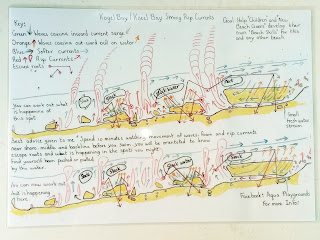 Koggi Bay / (Koggi Bay) Strong Rip Currents
Key:
Green ↓ Waves coming inward current surge
Orange ↑ Waves coming out ward pull on water
Blue → Softer currents
Red ↑ Rip Currents
Escape roots
Goal: Help "Children and New
Beach Goers" develop their
own "Beach Skills" for this
and any other beach.
You can work out what
is happening at
this spot
Rock
Rock
Black water
Rock
Small
fresh water
stream
Best advice given to me "Spend 10 minutes watching movement of waves, foam and rip currents
near shore, middle and backline before you swim, you will be orientated to know
escape roots and what is happening in the spots you might
find yourself been pushed or pulled
by the water
You can now work out
what is happening
here.
Rock
Rock
Black water
Rock
Facebook: Aqua Playgrounds
For more Info!